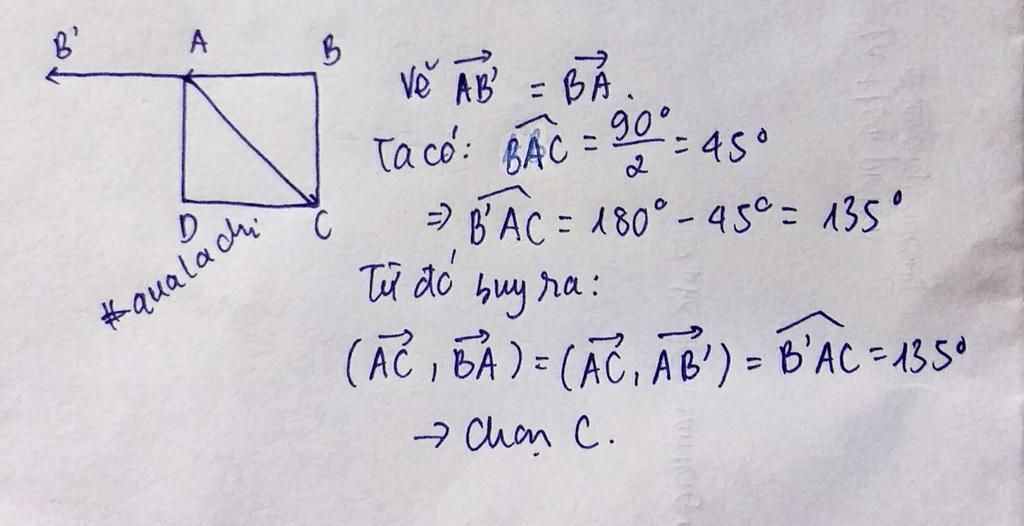 B' A B
D C
#aualachi
Vẽ $\overrightarrow{AB'} = \overrightarrow{BA}$.
Ta có: $\widehat{BAC} = \frac{90°}{2} = 45°$
⇒ $\widehat{B'AC} = 180° - 45° = 135°$
Từ đó suy ra:
$(\overrightarrow{AC}, \overrightarrow{BA}) = (\overrightarrow{AC}, \overrightarrow{AB'}) = \widehat{B'AC} = 135°$
→ Chọn C.